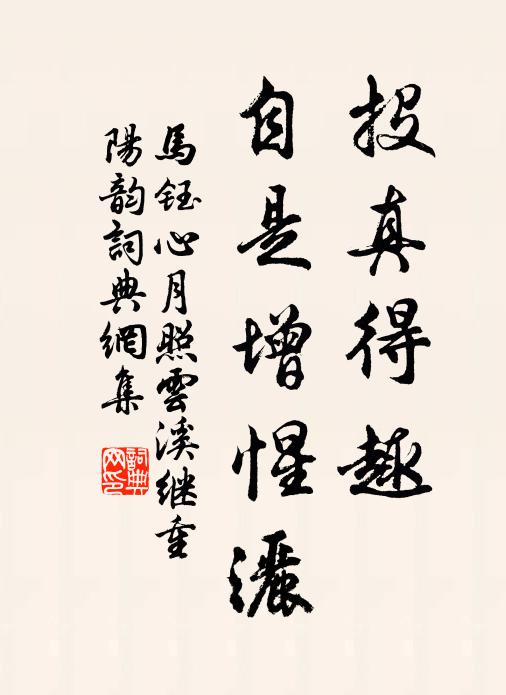 投真得趣
自是增惺灑
馬鈺心月照雲溪继重
陽韵詞典網集
詞典
网印